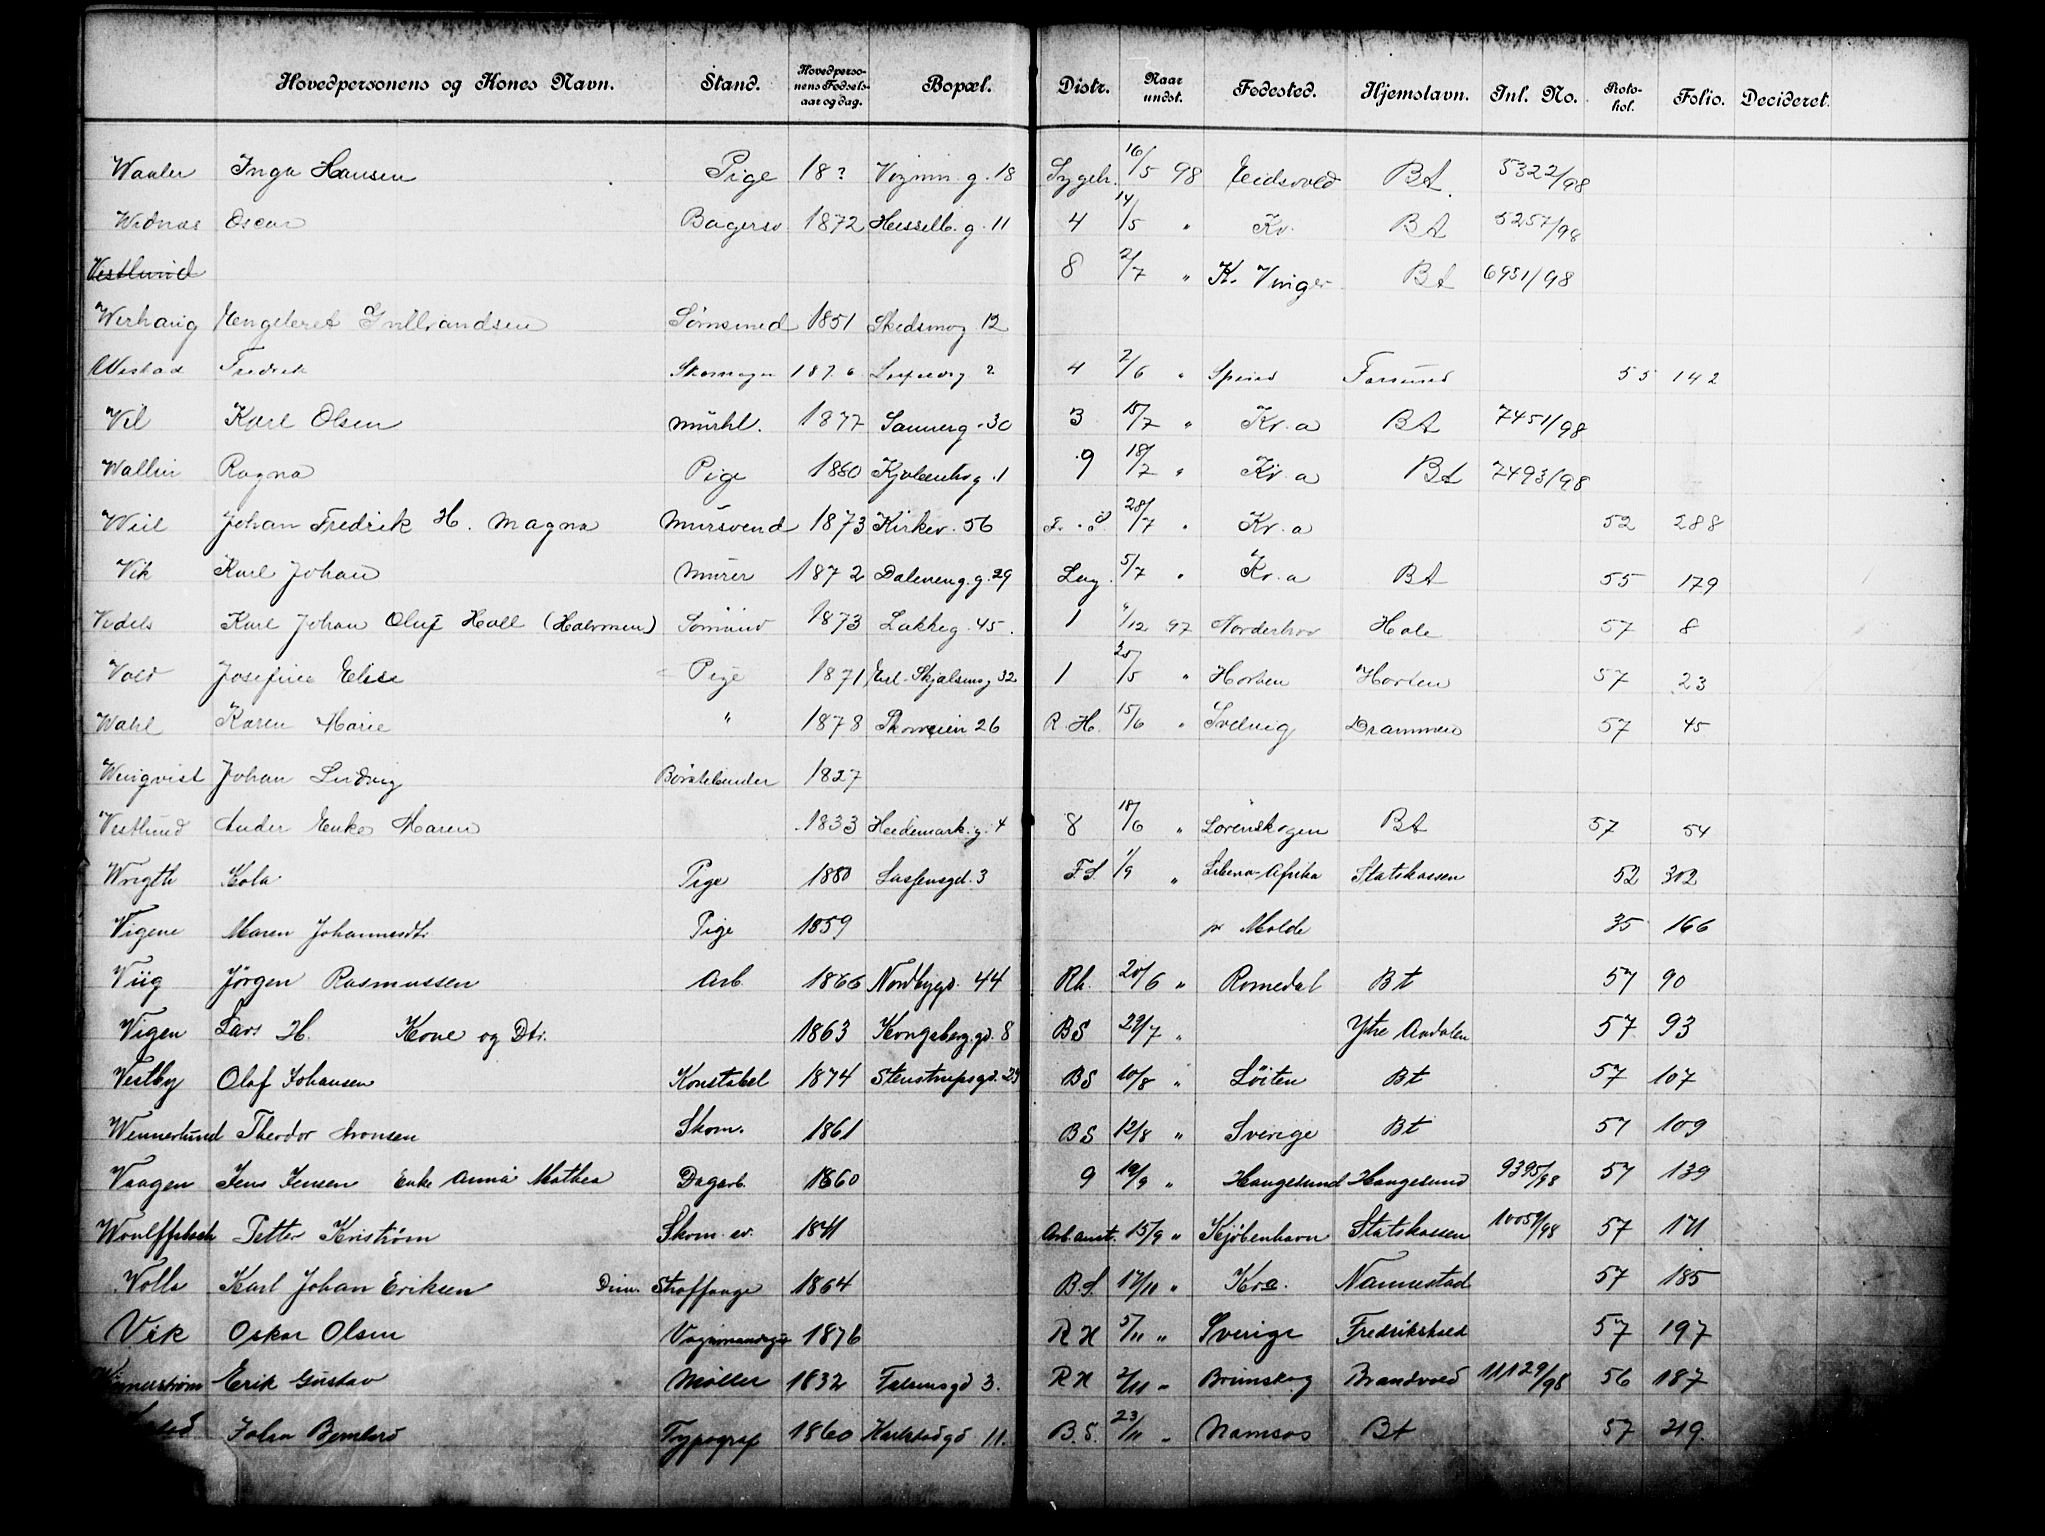 Hovedpersonens og Kones Navn. Stand. Hovedpersonens Fødselsaar og dag. Bopæl. Distr. Naar undst. Fødested. Hjemstavn. Inl. No. Protokol. Folio. Decideret.
Waaler Inga Hansen Pige 18? Vognm. g. 18 Sygeh. 16/5 98 Eidsvold Bt. 5322/98
Oscar Bagersv 1872 Hesselb. g. 11 4 14/5 " Kr. Bt 5257/98
Vestlund 8 2/7 " K. Vinger Bt 6951/98
Werhaug Engebret Gulbrandsen 1851 Skedsmog 12
Westad Fredrik Skomager 1876 2 4 2/6 " Spind Farsund 55 142
Vil Karl Olsen Murhl. 1877 Sannerg. 30 3 15/7 " Kr.a Bt 7451/98
Wallin Ragna Pige 1880 Kjølenbg. 1 9 18/7 " Kr.a Bt 7493/98
Wiil Johan Fredrik H. Magna Mursvend 1873 Kirkev. 56 28/7 " Kr.a 52 288
Vik Karl Johan Murer 1872 Daleneng. g. 29 Lag. 5/7 " Kr.a Bt 55 179
Vedels Karl Johan Oluf Hall (Halvorsen) Sømand 1873 Lakkeg. 45. 1 /12 97 Norderhov Hole 57 8
Vold Josefine Elise Pige 1871 Erl. Skjalsøng 32 1 25/5 " Horten Horten 57 23
Wahl Karen Marie " 1878 26 R. H. 15/6 " Svelvig Drammen 57 45
Wenqvist Johan Ludvig Børstebinder 1827
Vestlund Ander Enke Maren 1833 Hedemark. g. 4 8 18/6 " Lørenskogen Bt 57 54
Wrigth Kola Pige 1880 Lassensgd. 3 F.S. 1/9 " Liberia-Afrika Statskassen 52 302
Vigene Maren Johannesdtr. Pige 1859 pr Molde 35 166
Viig Jørgen Rasmussen Arb. 1866 Nordbygd. 44 Rh. 20/6 " Romedal Bt 57 90
Vigen Lars H. Kone og Dtr. 1863 Kongsberg.gd. 8 BS 29/7 " Ytre Aadalen 57 93
Vestby Olaf Johansen Konstabel 1874 Stenstrupsgd. 23 BS 10/8 " Løiten Bt 57 107
Wennerlund Theodor Aronsen Skom. 1861 BS 12/8 " Sverige Bt 57 109
Vaagen Jens Jensen Enke Anna Mathea Dagarb. 1860 9 19/9 " Haugesund Haugesund 9395/98 57 139
Petter Kriström Skom. sv. 1841 Arb.anst. 15/9 " Kjøbenhavn Statskassen 10059/98 57 171
Wolls Karl Johan Eriksen Dim. Straffange 1864 B.S. 17/10 " Kra. Nannestad 57 185
Vik Oskar Olsen Vognmandsgut 1876 R H 5/11 " Sverige Fredrikshald 57 197
Erik Gustav Møller 1832 Falsensgd 3. R H 2/11 " Brunskog Brandvold 11129/98 56 187
Johan Berntsrd Typograf 1860 Karlstadgd 11. B.S. 23/11 " Namsos Bt 57 219.